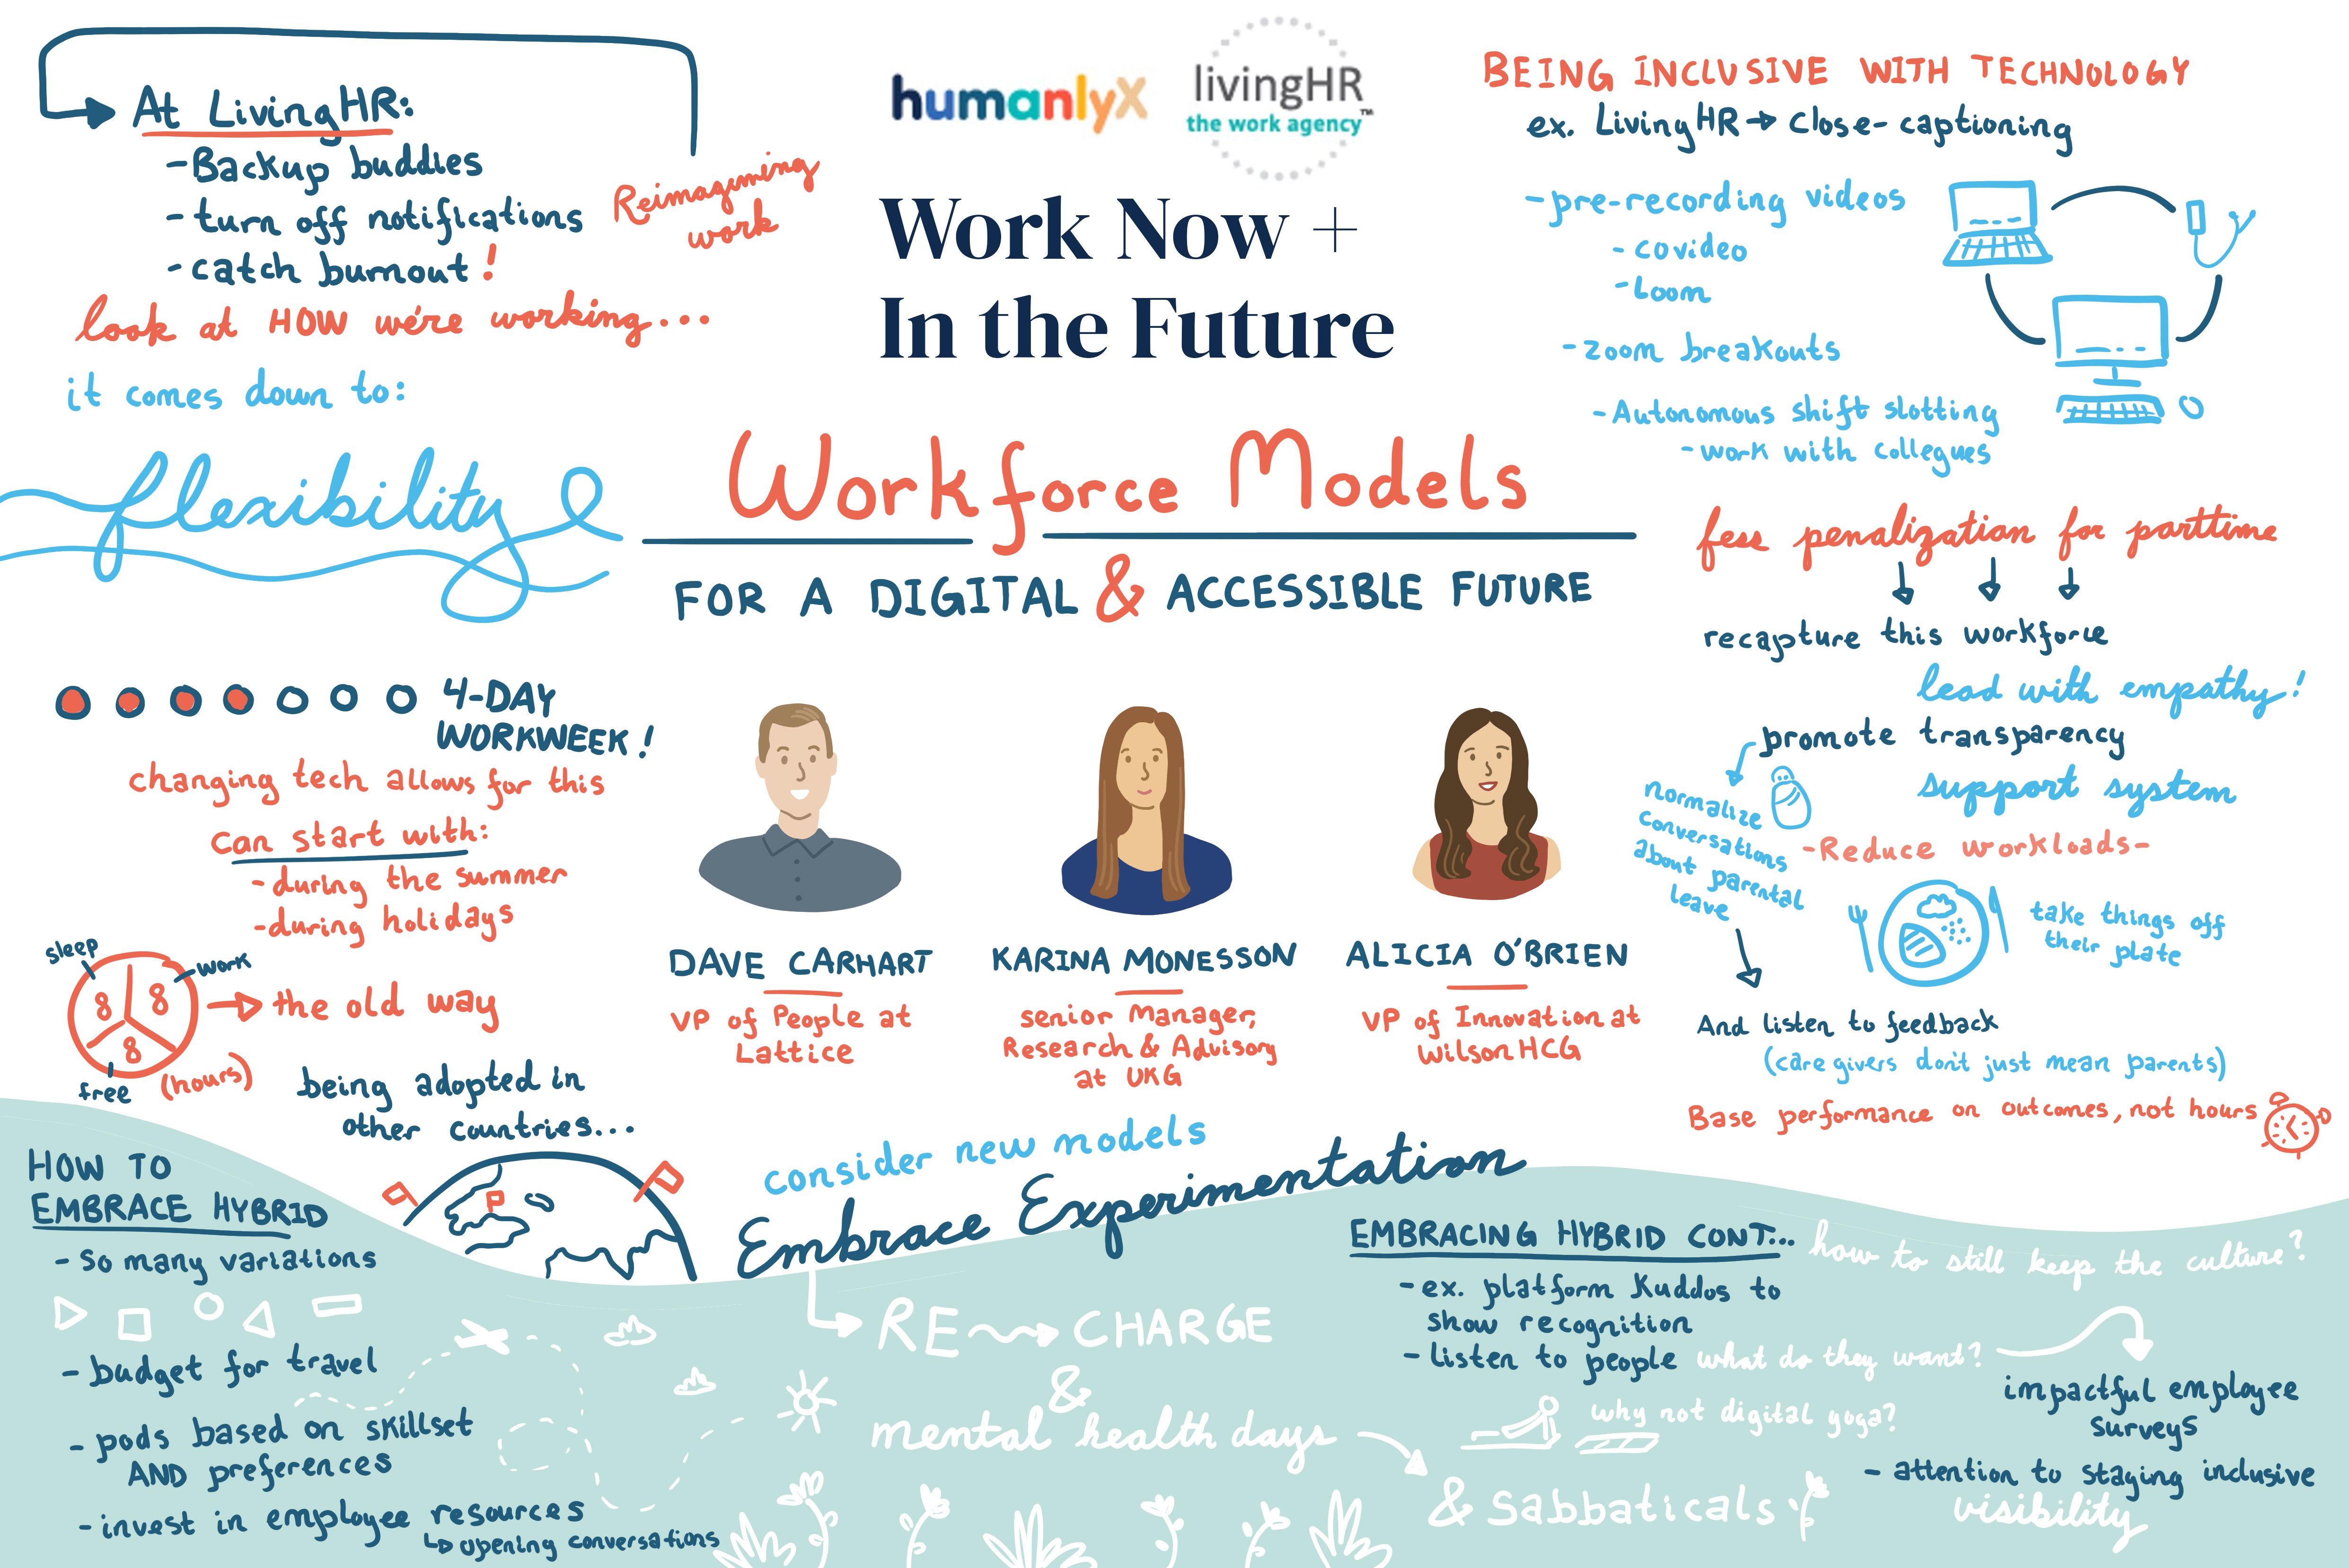 humanlyX
livingHR
the work agency™
Work Now +
In the Future
Workforce Models
FOR A DIGITAL & ACCESSIBLE FUTURE
At LivingHR:
-Backup buddies
-turn off notifications
-catch burnout!
Reimagening
work
look at HOW we're working...
it comes down to:
flexibility
4-DAY
WORKWEEK!
changing tech allows for this
can start with:
-during the summer
-during holidays
sleep
work
8
8
8
free
(hours)
the old way
being adopted in
other countries...
DAVE CARHART
VP of People at
Lattice
KARINA MONESSON
senior Manager,
Research & Advisory
at UKG
ALICIA O'BRIEN
VP of Innovation at
WilsonHCG
BEING INCLUSIVE WITH TECHNOLOGY
ex. LivingHR → close-captioning
-pre-recording videos
-covideo
-Loom
-zoom breakouts
-Autonomous shift slotting
-work with collegues
fess penalization for parttime
recapture this workforce
lead with empathy!
promote transparency
normalize
conversations
about parental
leave
support system
-Reduce workloads-
take things off
their plate
And listen to feedback
(care givers don't just mean parents)
Base performance on outcomes, not hours
HOW TO
EMBRACE HYBRID
- So many variations
- budget for travel
- pods based on skillset
AND preferences
- invest in employee resources
↳ opening conversations
consider new models
Embrace Experimentation
RE → CHARGE
&
mental health days
& Sabbaticals
EMBRACING HYBRID CONT...
how to still keep the culture?
-ex. platform Kuddos to
show recognition
- listen to people what do they want?
why not digital yoga?
impactful employee
surveys
- attention to staging inclusive
visibility